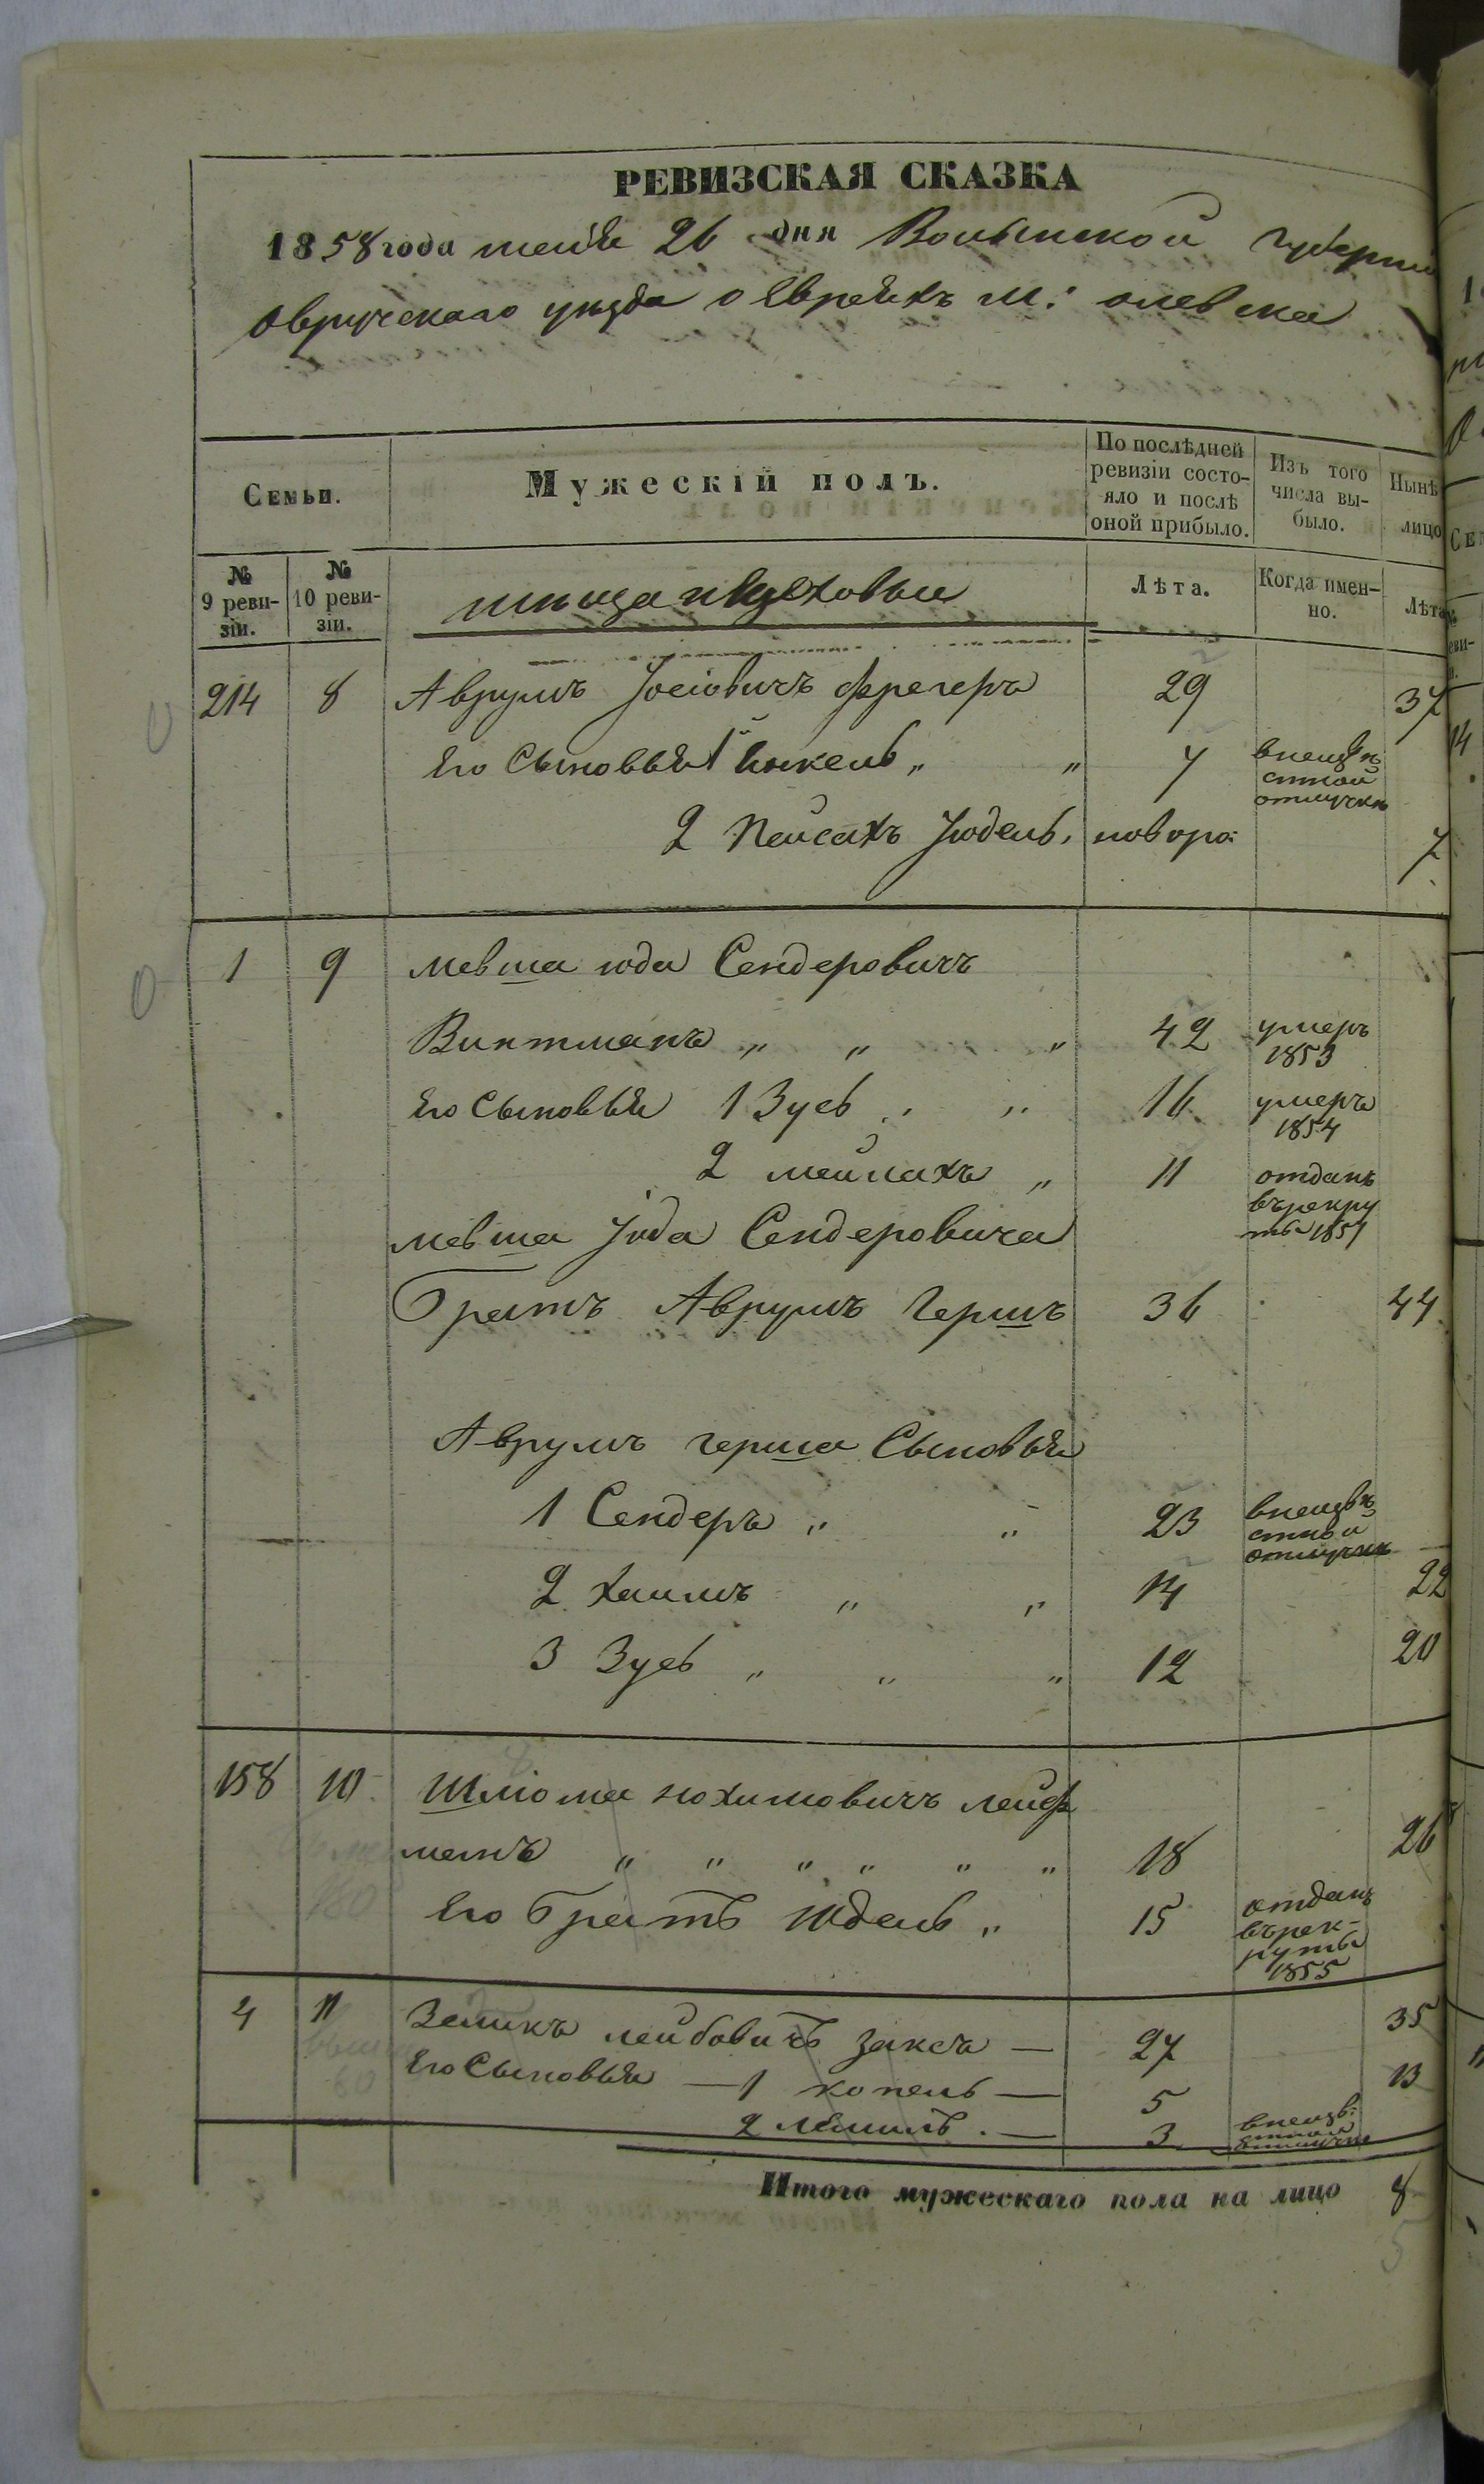 РЕВИЗСКАЯ СКАЗКА
1858 года маія 26 дня Волынской губерніи
Овручскаго уѣзда о Евреяхъ м: Олевска
Семьи.
Мужескій полъ.
По послѣдней ревизіи состо-
яло и послѣ
оной прибыло.
Изъ того
числа вы-
было.
Нынѣ
лицо
№
9 реви-
зіи.
№
10 реви-
зіи.
Лѣта.
Когда имен-
но.
Лѣта
214 8 Аврумъ Іосіовичъ Фрегеръ 29 37
Его Сыновья 1й Іанкель „ „ 7 в неизвѣ
стной
отлучкѣ
2 Пейсахъ Юдель, новоро: 7
1 9 Мевша юда Сендеровичъ
Винтманъ „ „ „ 42 умеръ
1853
Его Сыновья 1 Зусь „ „ 16 умеръ
1854
2 мейлахъ „ 11 отданъ
въ рекру
ты 1851
Мевша Юда Сендеровича
Братъ Аврумъ Гершъ 36 44
Аврумъ герша Сыновья
1 Сендеръ „ „ 23 в неизвѣ
стной
отлучкѣ
2 Хаимъ „ „ 14 22
3 Зусь „ „ „ 12 20
158 10 Шліома нохимовичъ лейф
манъ „ „ „ „ „ „ 18 26
Его Братъ Юдель „ 15 отданъ
въ рек-
руты
1855
4 11 Зеликъ лейбовичъ Заксъ — 27 35
Его Сыновья — 1 копель — 5 13
2 Лемиль . — 3 в неизвѣ:
стной
отлучкѣ
Итого мужескаго пола на лицо 8